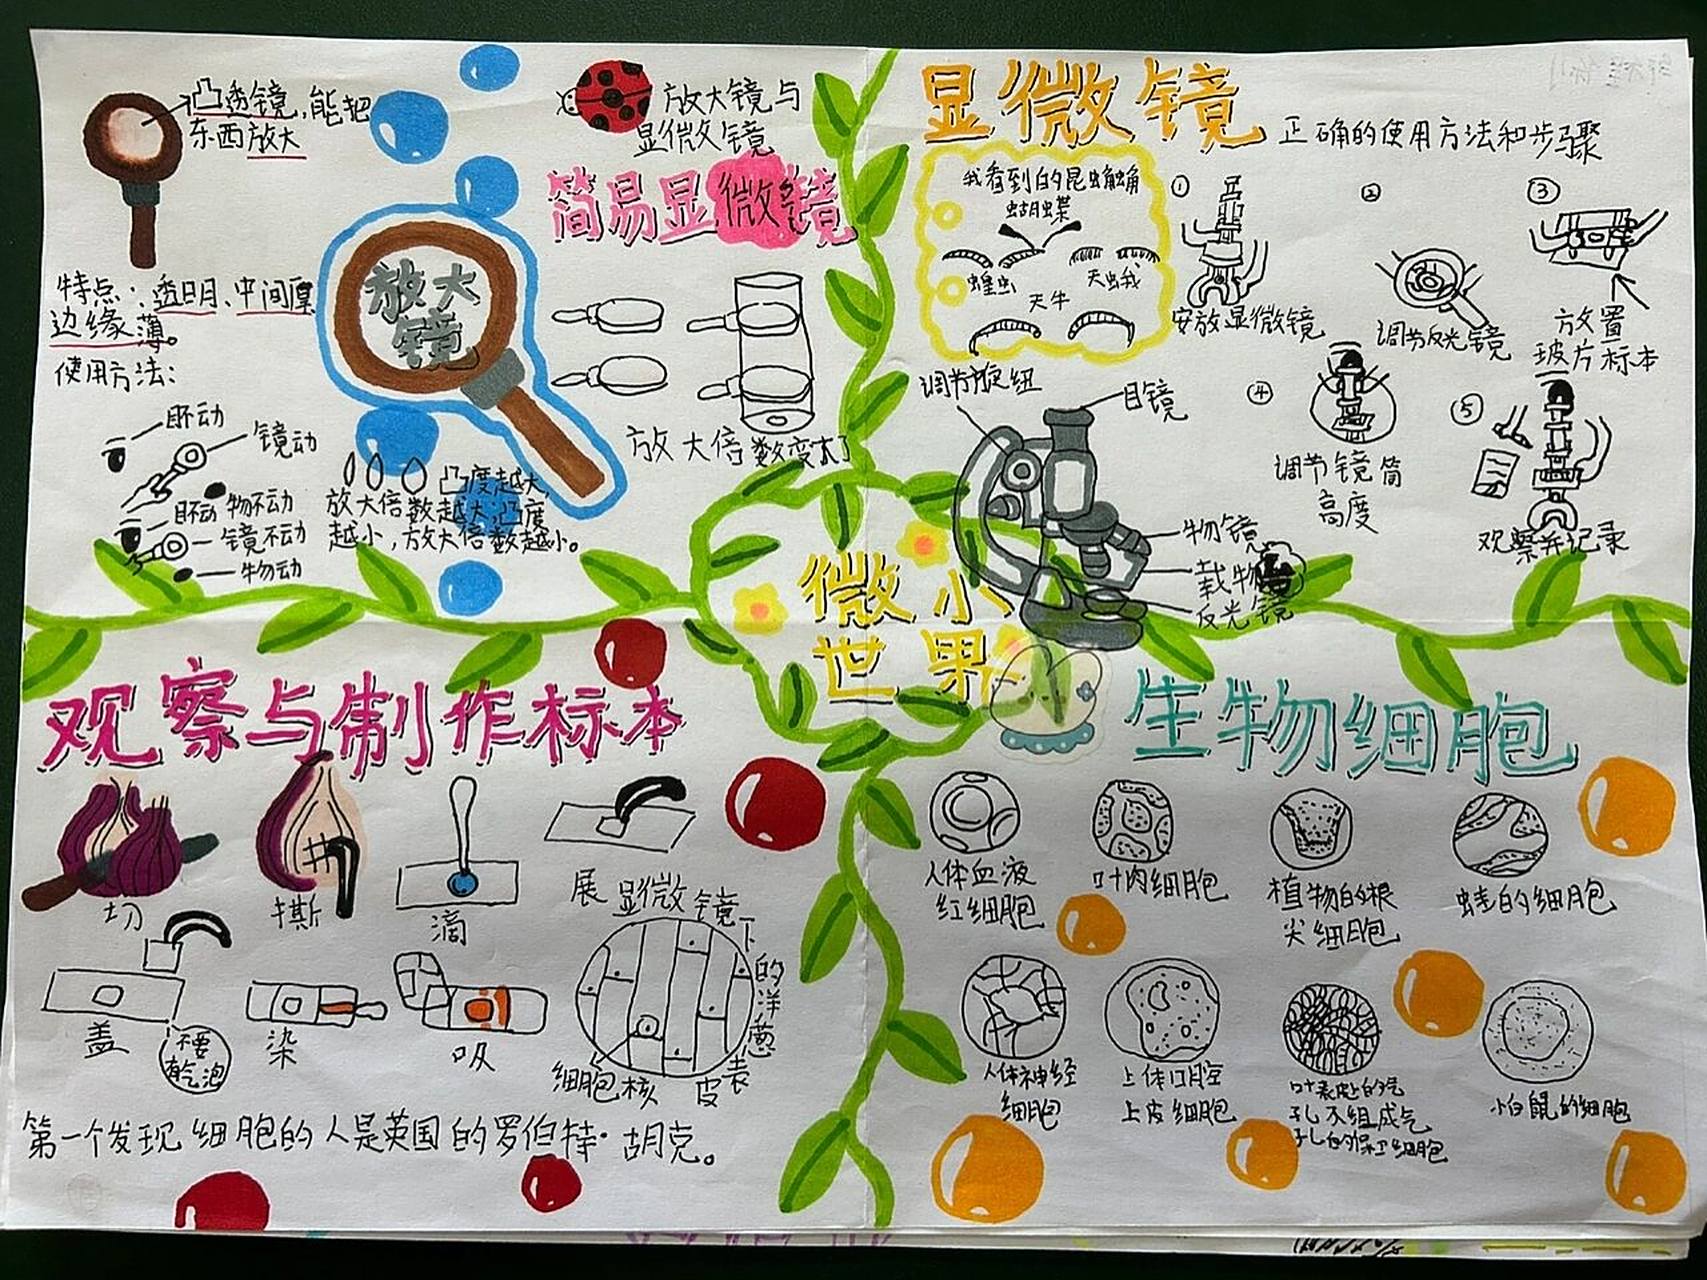 凸透镜，能把
东西放大
放大镜与
显微镜
简易显微镜
放大
镜
特点：透明、中间厚
边缘薄。
使用方法：
眼动
镜动
物不动
眼动
镜不动
物动
凸度越大，
放大倍数越大，凸度
越小，放大倍数越小。
放大倍数变大了
显微镜
正确的使用方法和步骤
我看到的昆蟲触角
蝴蝶
蝗虫
天牛
天虫我
①
安放显微镜
②
调节反光镜
③
放置
玻片标本
④
调节镜筒
高度
⑤
观察并记录
调节旋纽
目镜
物镜
载物
反光镜
微小
世界
观察与制作标本
切
撕
滴
展
盖
不要
有乞泡
染
吸
显微镜下
的洋葱
表皮
细胞核
第一个发现细胞的人是英国的罗伯特·胡克。
生物细胞
人体血液
红细胞
叶肉细胞
植物的根
尖细胞
蛙的细胞
人体神经
细胞
上体口腔
上皮细胞
叶表皮的气
孔不组成气
孔的保卫细胞
小白鼠的细胞